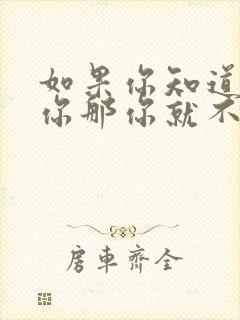 如果你知道
你那你就不
房車齊全